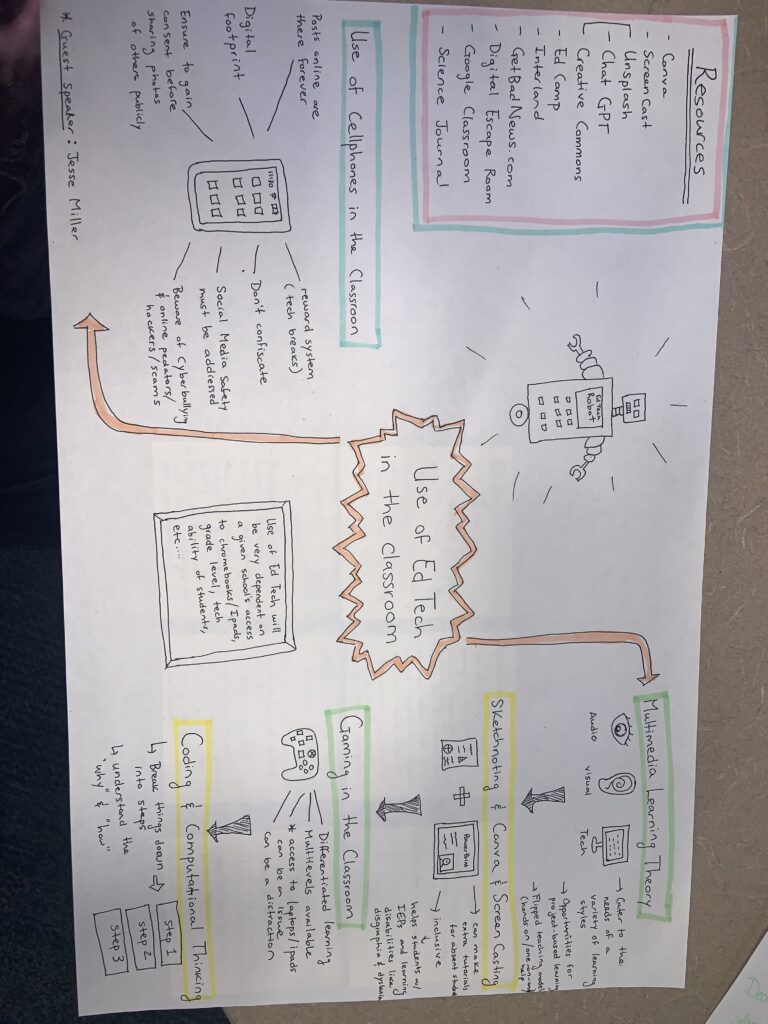 Resources
- Canva
- Screen Cast
Unsplash
- Chat GPT
Creative Commons
- Ed Camp
- Interland
- GetBadNews.com
- Digital Escape Room
- Google Classroom
- Science Journal
Ed Tech
Robot
Use of Ed Tech
in the classroom
Multimedia Learning Theory
Audio
Visual
Tech
→ Cater to the
needs of a
variety of learning
styles
→ Opportunities for
project-based learning
→ Flipped teaching model
(hands on/one-on-one
help)
Sketchnoting & Canva & Screen Casting
PowerPoint
→ can make
extra tutorials
for absent
→ inclusive
helps students w/
IEPs and learning
disabilities like
disgraphia & dyslexia
Gaming in the Classroom
Differentiated learning
Multi levels available
* access to laptops/ipads
can be an issue
can be a distraction
Coding & Computational Thinking
↳ Break things down
into steps
↳ understand the
"why" & "how"
Step 1
Step 2
Step 3
Use of Ed Tech will
be very dependent on
a given school's access
to chromebooks/Ipads,
grade level, tech
ability of students,
etc....
Use of Cellphones in the Classroom
Posts online are
there forever
Digital
footprint
Ensure to gain
consent before
sharing photos
of others publicly
reward system
(tech breaks)
Don't confiscate
Social Media Safety
must be addressed
Beware of Cyberbullying
& online pedators/
hackers/scams
* Guest Speaker: Jesse Miller